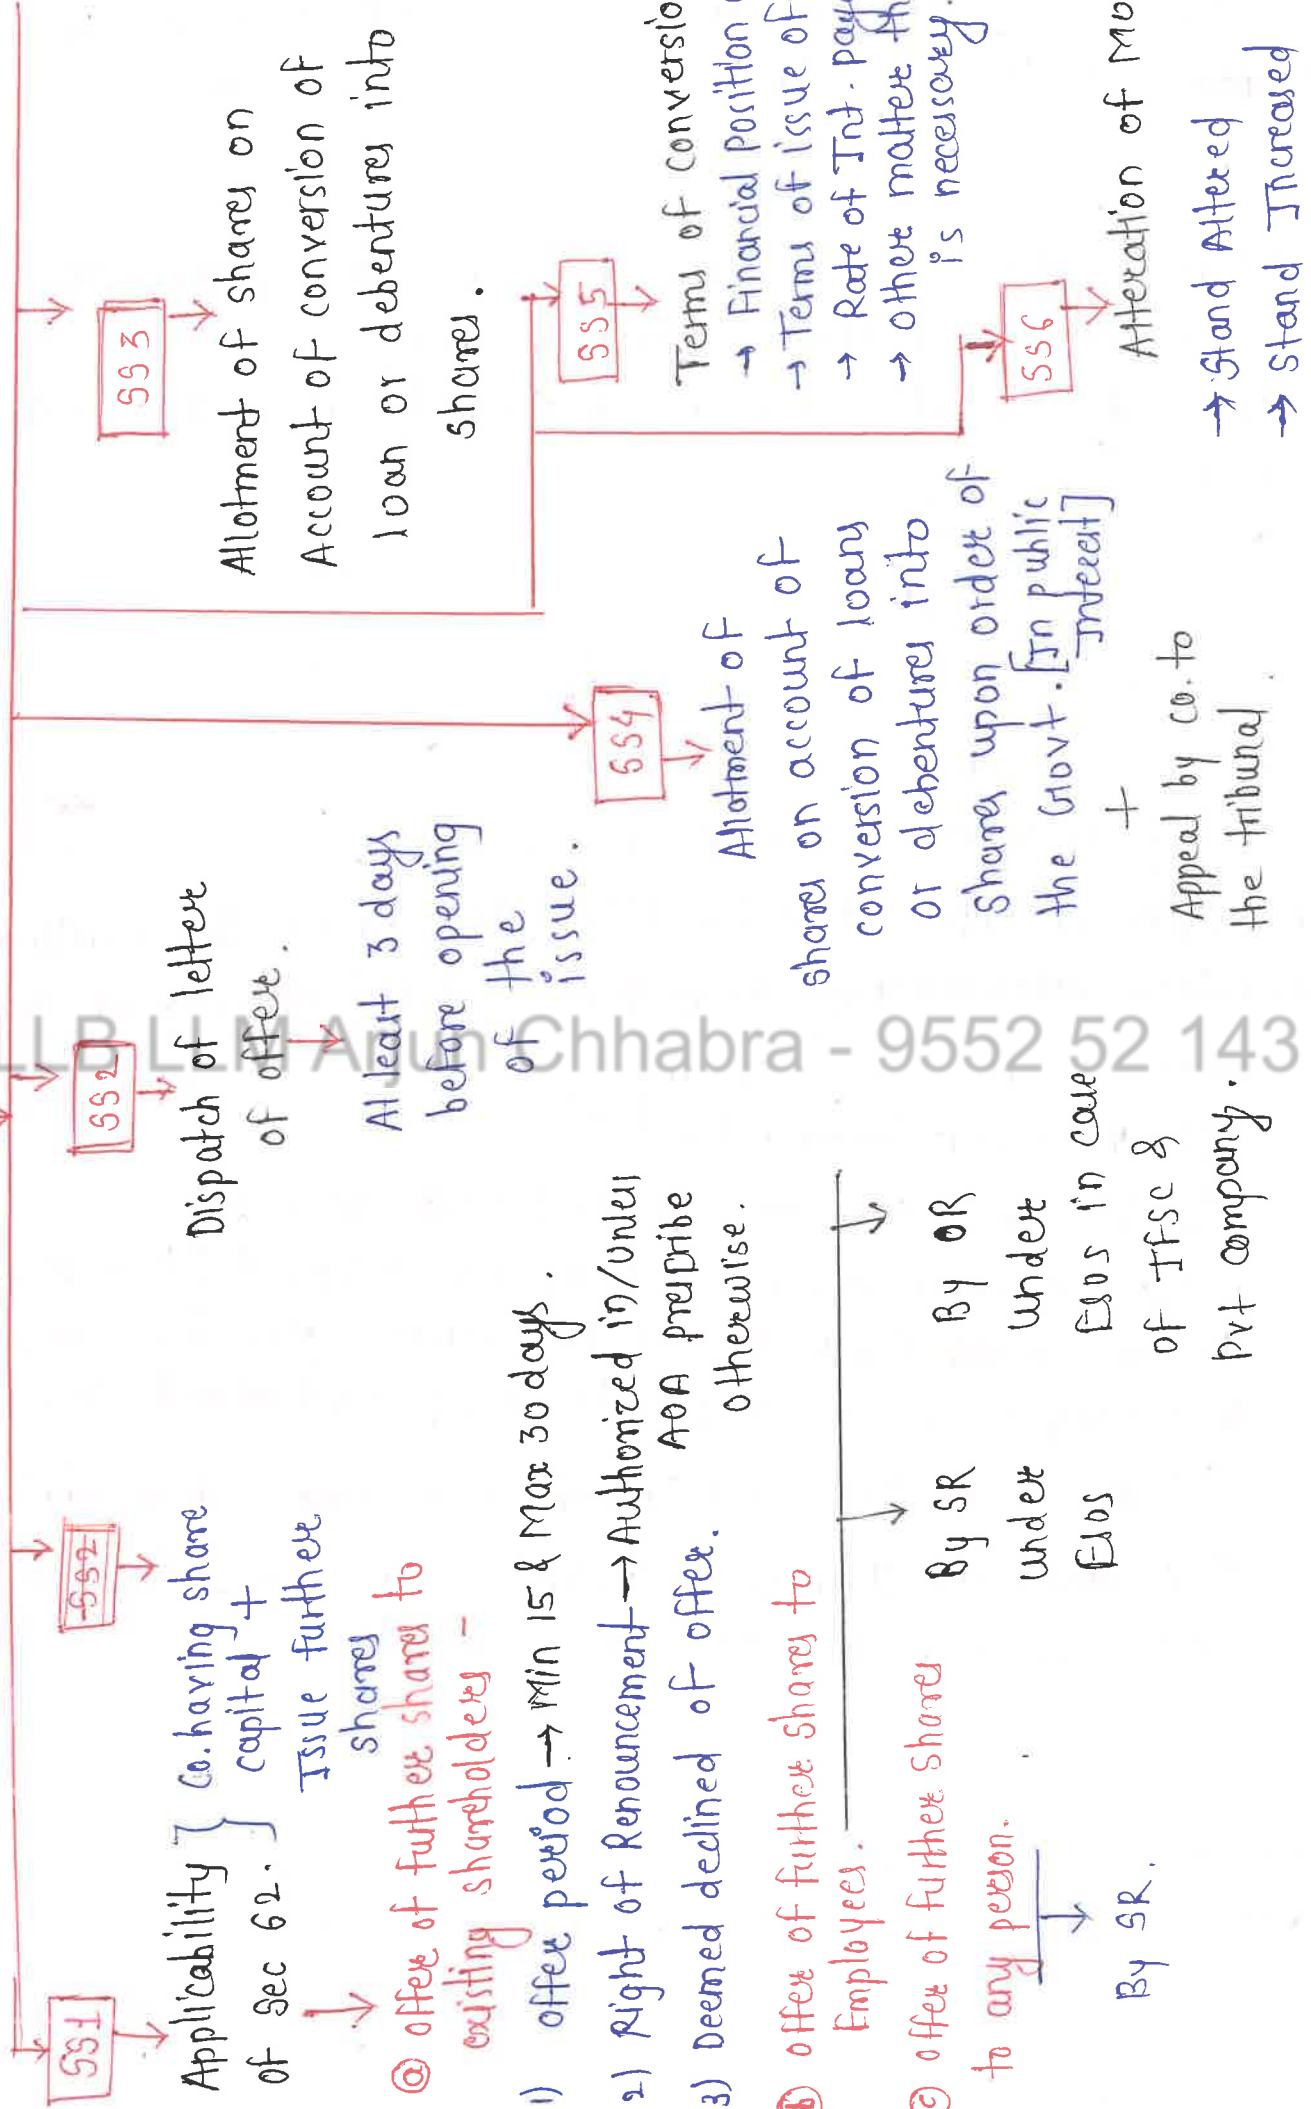 SS1
Applicability
of Sec 62.
Co. having share
capital +
Issue further
shares
SS2
@ offer of further shares to
existing shareholders -
1) offer period → Min 15 & Max 30 days.
2) Right of Renouncement → Authorized in/Unless
AOA prescribe
otherwise.
3) Deemed declined of offer.
b) offer of further shares to
Employees.
By SR
under
ESOS
By OR
under
ESOS in case
of IFSC &
Pvt company.
c) offer of further shares
to any person.
By SR.
SS2
Dispatch of letter
of offer.
Atleast 3 days
before opening
of the
issue.
SS4
Allotment of
shares on account of
conversion of loans
or debentures into
shares upon order of
the Govt. [In public
Interest]
+
Appeal by co. to
the tribunal.
SS3
Allotment of shares on
Account of conversion of
loan or debentures into
shares.
SS5
Terms of conversio
→ Financial position
→ Terms of issue of
→ Rate of Int. pay
→ Other matter th
is necessary.
SS6
Alteration of Mo
→ Stand Altered
→ Stand Increased
LLB LLM Arjun Chhabra - 9552 52 143